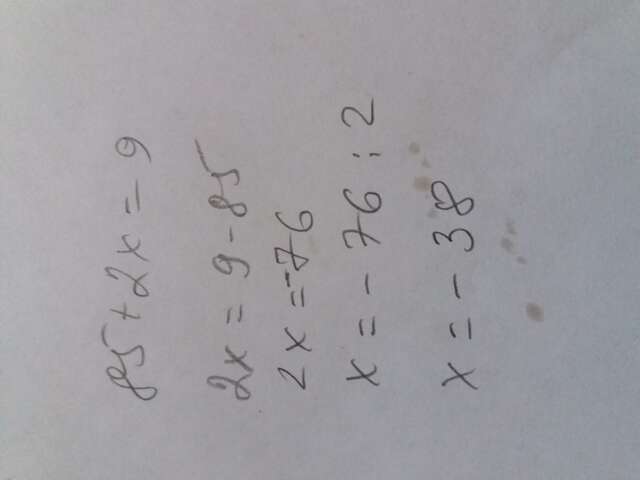 85+2x=9
2x=9-85
2x=-76
x=-76:2
x=-38